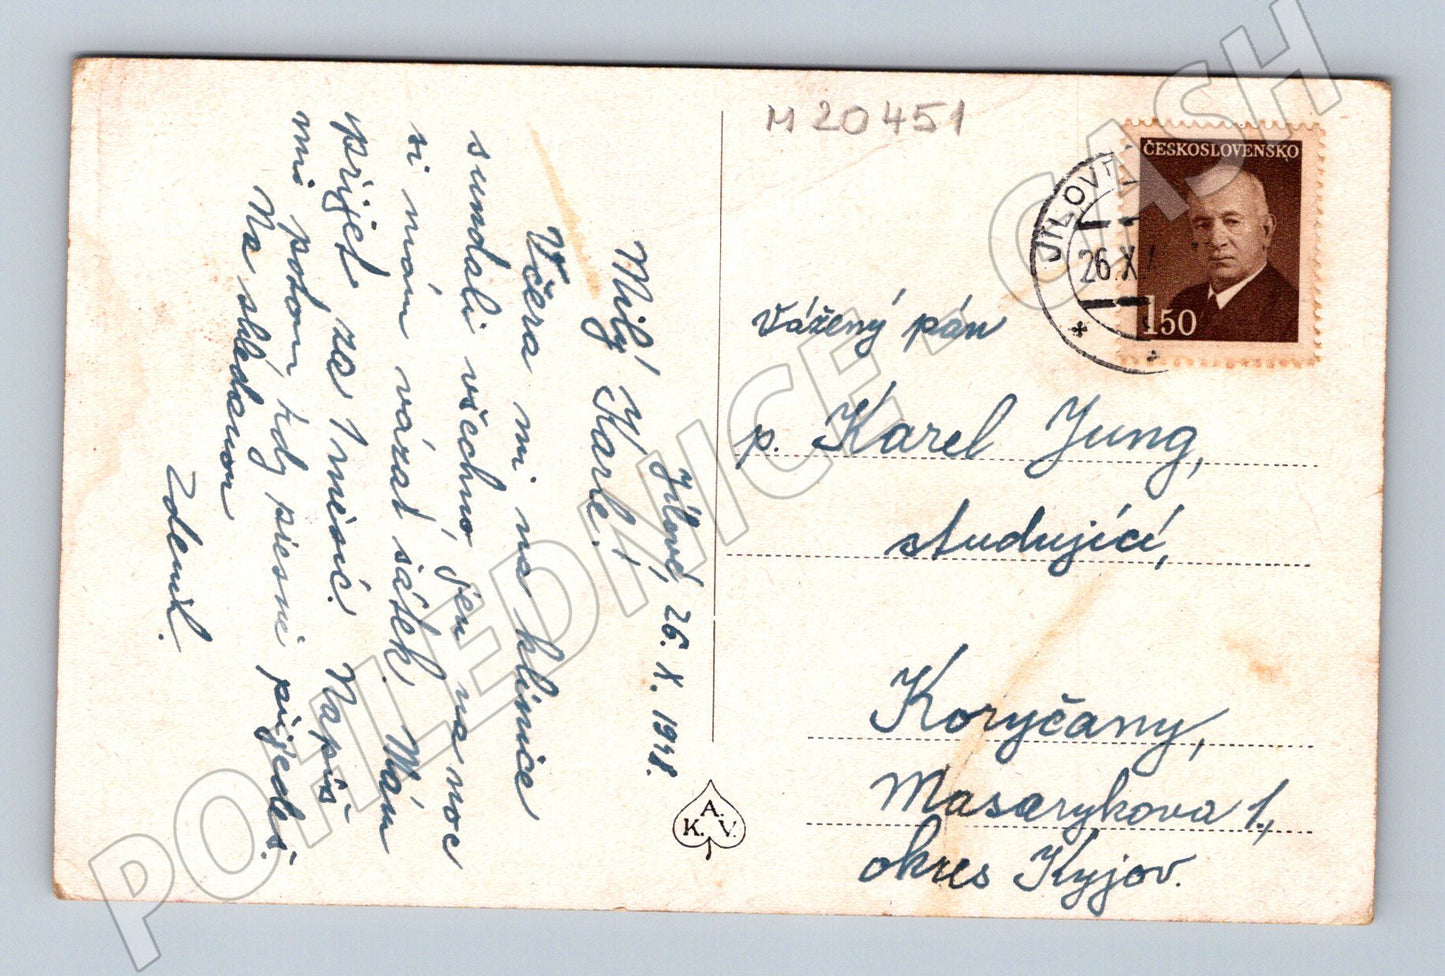 M 20451
Jílové, 26. X. 1948.
Milý Karle!
Včera mi na klinice
sundali všechno, jen na noc
si mám vázat šátek. Mám
přijet za 1 měsíc. Napiš
mi potom kdy přijedeš.
Na shledanou
Zdeněk.
A.
K. V.
ČESKOSLOVENSKO
1.50
JÍLOV
26.X
Vážený pán
p. Karel Jung,
studující,
Koryčany,
Masarykova 1.,
okres Kyjov.
POHLEDNICE - CASH